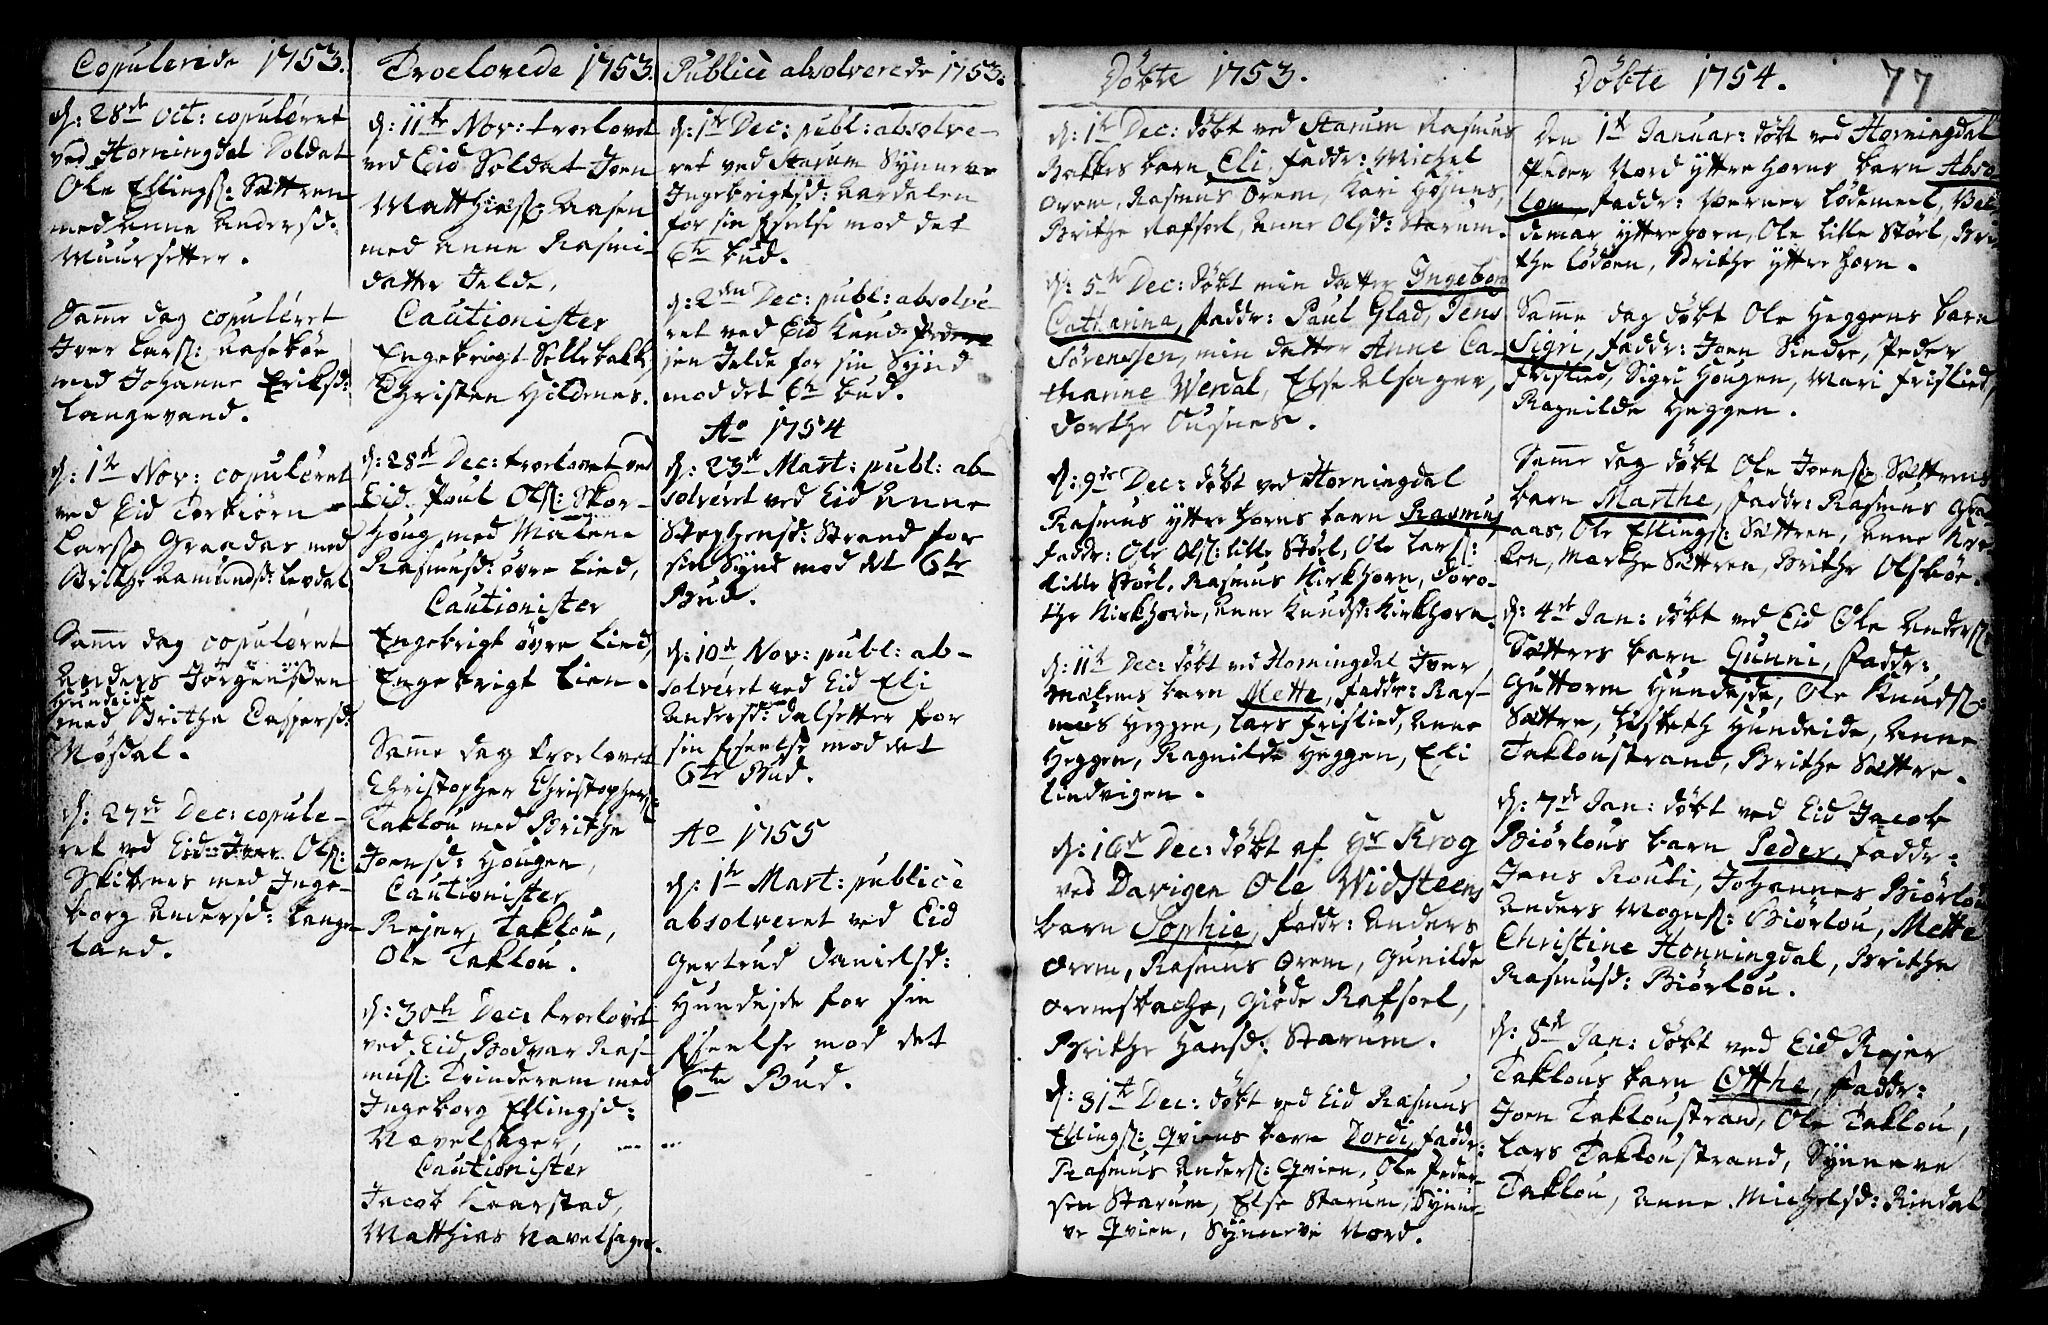 Copulerede 1753.
d: 28de Oct: copuleret
ved Horningdal Soldat
Ole Ellings: Sættren
med Anne Andersd:
Muursetter.
Samme dag copuleret
Iver Lars: Aasebøe
med Johanne Eriksd:
Langevand.
d: 1te Nov: copuleret
ved Eid Torbiørn
Larss: Graadas med
Brithe Aamundsd: Levdal
Samme dag copuleret
Anders Jørgenssen
Hundeide
med Brithe Caspersd:
Nøsdal.
d: 27de Dec: copule-
ret ved Eid Iver Ols:
Skibenes med Inge-
borg Andersd: Lange-
land.
Troelovede 1753.
d: 11te Nov: troelovet
ved Eid Soldat Joen
Matthias: Aasen
med Anne Rasmi-
datter Jelde.
Cautionister
Engebrigt Sellebakk,
Christen Hildenes.
d: 28de Dec: troelovet ved
Eid Poul Ols: Skor-
houg med Malene
Rasmusd: øvre Lied,
Cautionister
Engebrigt øvre Lied,
Engebrigt Lien.
Samme dag troelovet
Christopher Christophers:
Taklou med Brithe
Joensd: Hougen,
Cautionister
Rejer Taklou,
Ole Taklou.
d: 30te Dec: troelovet
ved Eid Bodvar Ras-
mus: Tvinderem med
Ingeborg Ellingsd:
Navelsager,
Cautionister
Jacob Haarstad,
Matthias Navelsager.
Publice absolverede 1753.
d: 1te Dec: publ: absolve-
ret ved Starum Synneve
Ingebrigtsd: Aardalen
for sin Eenelse mod det
6te bud.
d: 2den Dec: publ: absolve-
ret ved Eid Knud Peder-
sen Jelde for sin Synd
mod det 6te bud.
Ao 1754
d: 23de Mart: publ: ab-
solveret ved Eid Anne
Stephensd: Strand for
sin Synd mod det 6te
Bud.
d: 10de Nov: publ: ab-
solveret ved Eid Eli
Andersd: Dalsetter for
sin Eenelse mod det
6te Bud.
Ao 1755
d: 1te Mart: publice
absolveret ved Eid
Gertrud Danielsd:
Hundejde for sin
Eenelse mod det
6te Bud.
Døbte 1753.
d: 1te Dec: døbt ved Starum Rasmus
Bakkes barn Eli, Faddr: Michel
Orem, Rasmus Orem, Kari Hojnes,
Brithe Rafsoel, Anne Olsd: Starum.
d: 5te Dec: døbt min datter Ingeborg
Catharina, Faddr: Paul Glad, Jens
Sørenssen, min datter Anne Ca-
tharine Werdal, Else Alsager,
Dorthe Ousnes.
d: 9de Dec: døbt ved Horningdal
Rasmus ytterhorns barn Rasmus
Faddr: Ole Ols: lille Støel, Ole Lars:
lille Støel, Rasmus Kirkhorn, Doro-
the Kirkhorn, Anne Knudsd: Kirkhorn.
d: 11te Dec: døbt ved Horningdal Iver
Mælens barn Mette, Faddr: Ras-
mus Heggen, Lars Frislied, Anne
Heggen, Ragnilde Heggen, Eli
Lindvigen.
d: 16de Dec: døbt af Hr Krog
ved Davigen Ole Widsteens
barn Sophie, Faddr: Anders
Orem, Rasmus Orem, Gunilde
Oremsbache, Giøde Rafsoel,
Brithe Hansd: Starum.
d: 31te Dec: døbt ved Eid Rasmus
Ellings: Qviens barn Dordi, Faddr:
Rasmus Anders: Qvien, Ole Peder-
sen Starum, Else Starum, Synne-
ve Qvien, Synneve Nord.
Døbte 1754.
77
Den 1te Januar: døbt ved Horningdal
Peder Nord ytterhorns barn Abso-
lom, Faddr: Werner Lødemeel, Val-
demar ytterhorn, Ole lille Støel, Bri-
the Lødoen, Brithe ytterhorn.
Samme dag døbt Ole Heggens barn
Sigri, Faddr: Joen Sindre, Peder
Frislied, Sigri Hougen, Mari Frislied,
Ragnilde Heggen.
Samme dag døbt Ole Joens: Sættrens
barn Marthe, Faddr: Rasmus Gra-
aas, Ole Ellings: Sættren, Anne
Marthe Sættren, Brithe Olsbøe.
d: 4de Jan: døbt ved Eid Ole Anders:
Sættres barn Gunni, Faddr:
Guttorm Hundejde, Ole Knuds:
Sættre, Lisbeth Hundeide, Anne
Takloustrand, Brithe Sættre.
d: 7de Jan: døbt ved Eid Jacob
Biørlous barn Peder, Faddr:
Jens Routi, Johannes Biørlou
Anders Mogns: Biørlou, Mette
Christine Honningdal, Brithe
Rasmusd: Biørlou.
d: 8de Jan: døbt ved Eid Rejer
Taklous barn Otthe, Faddr:
Joen Takloustrand, Ole Taklou,
Lars Takloustrand, Synneve
Taklou, Anne Michelsd: Rindal